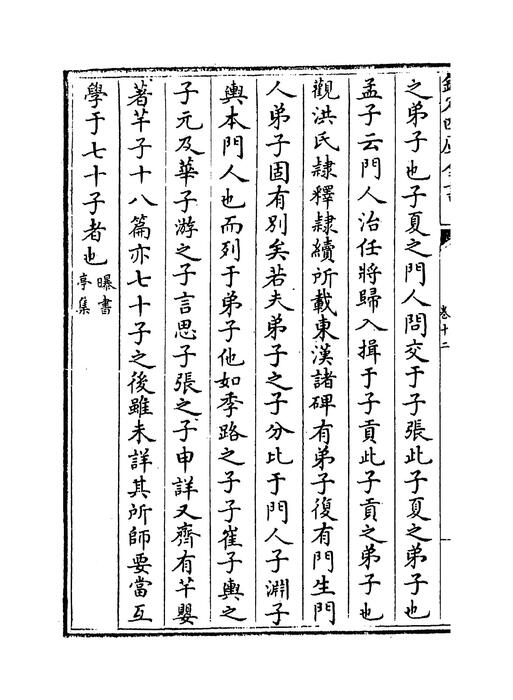 之弟子也子夏之門人問交于子張此子夏之弟子也
孟子云門人治任將歸入揖于子貢此子貢之弟子也
觀洪氏隷釋隷續所載東漢諸碑有弟子復有門生門
人弟子固有別矣若夫弟子之子分比于門人子淵子
輿本門人也而列于弟子他如季路之子子崔子輿之
子元及華子游之子言思子張之子申詳又齊有芊嬰
著芊子十八篇亦七十子之後雖未詳其所師要當互
學于七十子者也曝書
亭集
卷十二